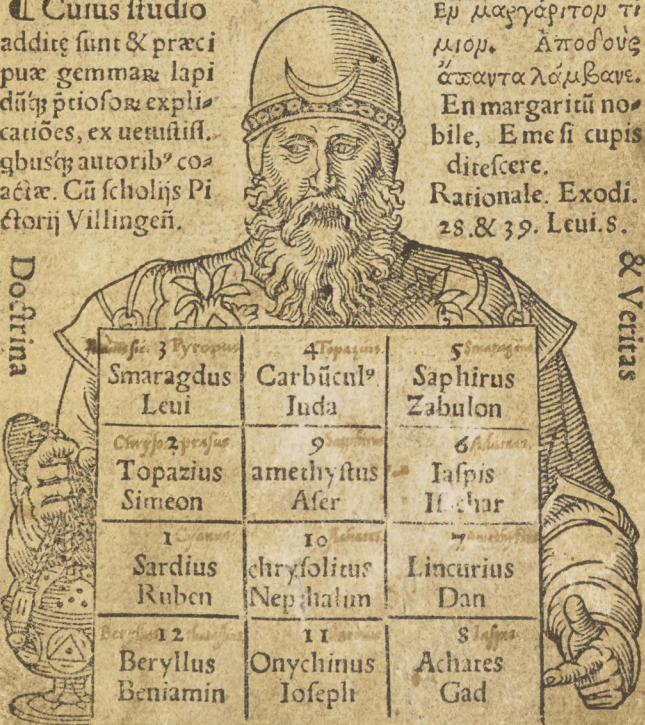 ¶ Cuius studio
additę sunt & præci
puæ gemmaꝝ lapi
dūq́ꝫ p̄tiosoꝝ expli-
catiões, ex uetustiss.
qbusq́ꝫ autorib⁹ co-
actæ. Cū scholijs Pi
ctorij Villingeñ.
Ἐμ μαργάριτομ τί
μιομ. Ἀποδοὺς
ἅπαντα λάμβανε.
En margaritū no-
bile, E me si cupis
ditescere.
Rationale. Exodi.
28.& 39. Leui.8.
Doctrina
& Veritas
3 Pyropus
Smaragdus
Leui
4 Topazius
Carbūcul⁹
Iuda
5 Smaragdus
Saphirus
Zabulon
Chrysoprasus
2
Topazius
Simeon
9
amethystus
Aser
6
Iaspis
Isachar
1 Cyanus
Sardius
Ruben
10 Achates
chrysolitus
Nepthalim
7 Amethystus
Lincurius
Dan
12
Beryllus
Beniamin
11
Onychinus
Ioseph
8 Iaspis
Achates
Gad